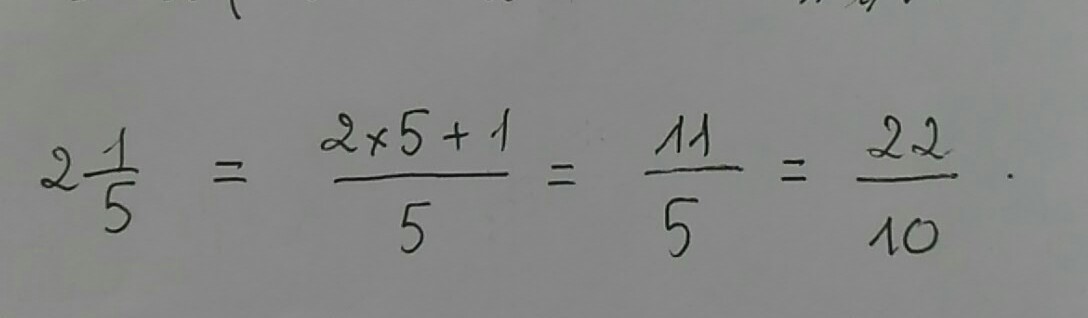 2 1/5 = (2×5+1)/5 = 11/5 = 22/10 .